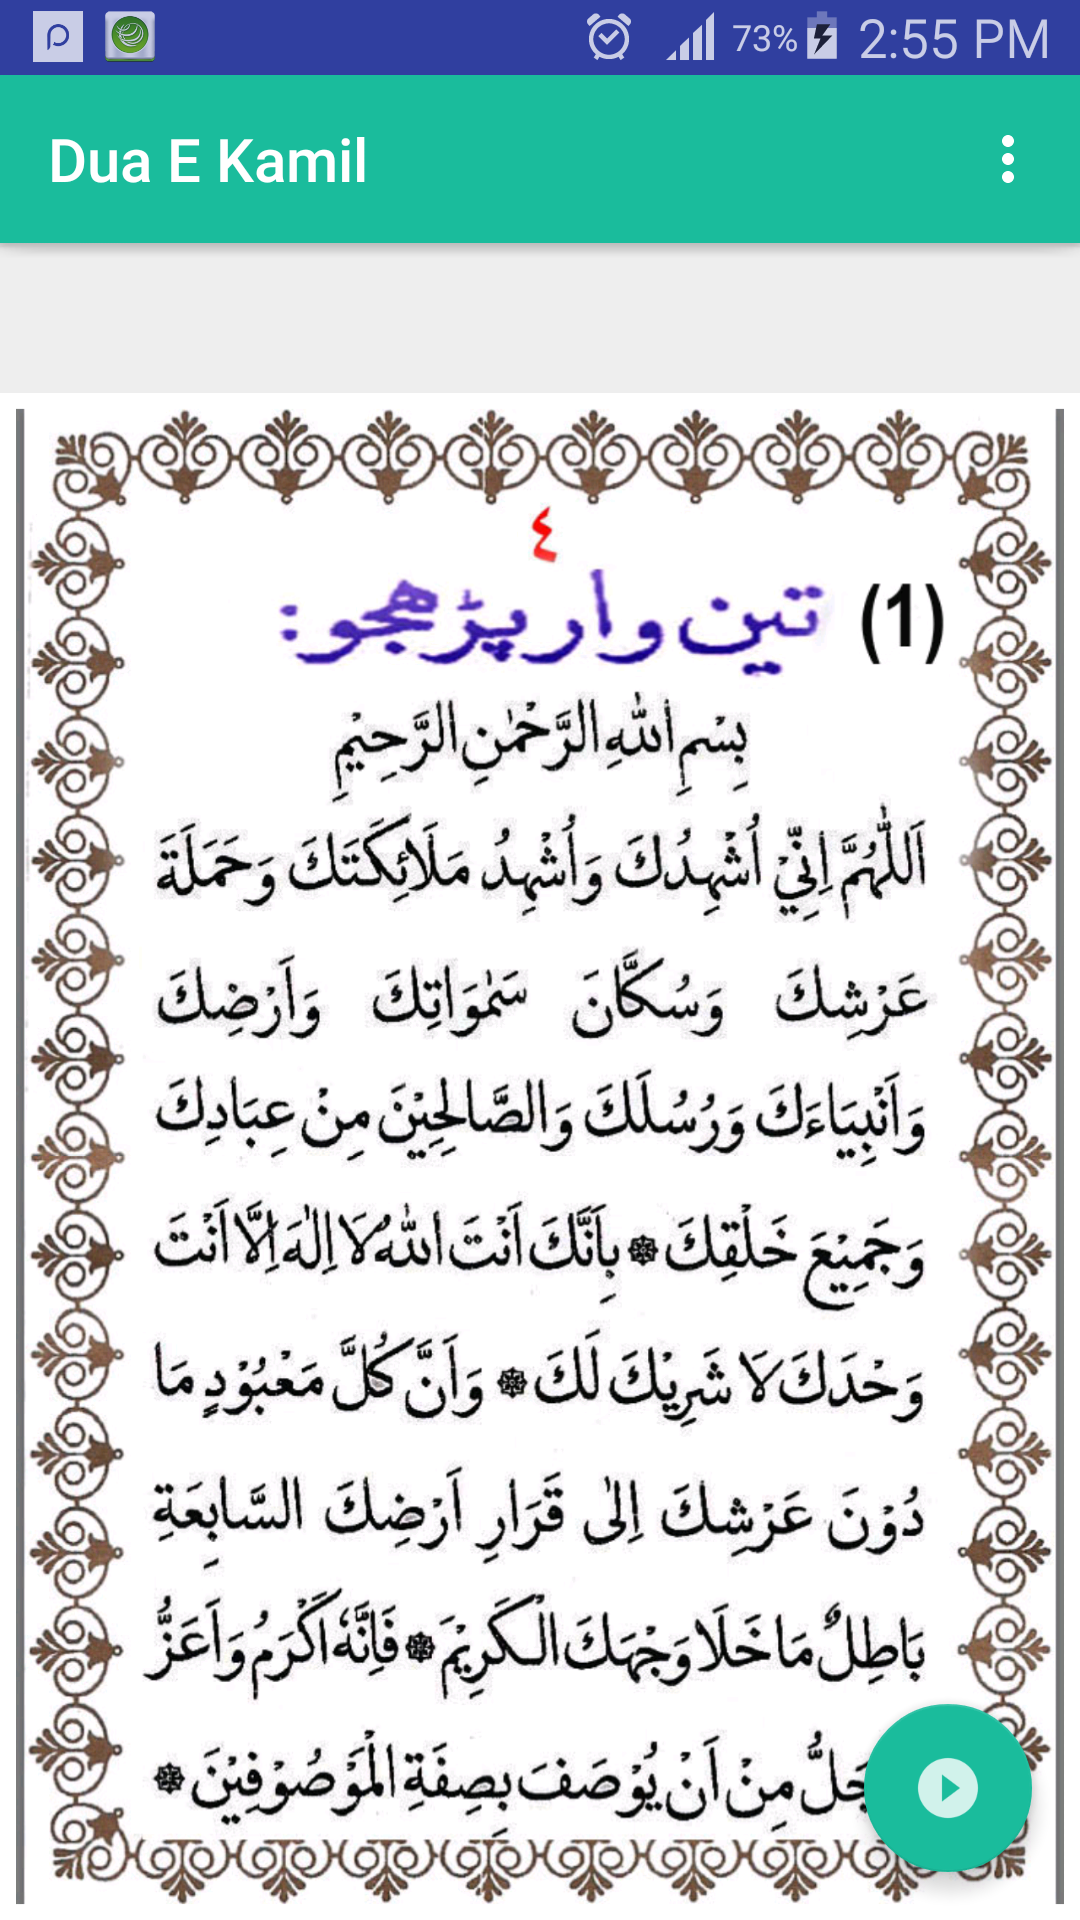 73% 2:55 PM
Dua E Kamil
٤
(1) تين وار پڑهجو:
بِسْمِ اللهِ الرَّحْمٰنِ الرَّحِيْمِ
اَللّٰهُمَّ اِنِّيْ اُشْهِدُكَ وَاُشْهِدُ مَلَائِكَتَكَ وَحَمَلَةَ
عَرْشِكَ وَسُكَّانَ سَمٰوَاتِكَ وَاَرْضِكَ
وَاَنْبِيَاءَكَ وَرُسُلَكَ وَالصَّالِحِيْنَ مِنْ عِبَادِكَ
وَجَمِيْعَ خَلْقِكَ ۞ بِاَنَّكَ اَنْتَ اللهُ لَا اِلٰهَ اِلَّا اَنْتَ
وَحْدَكَ لَا شَرِيْكَ لَكَ ۞ وَاَنَّ كُلَّ مَعْبُوْدٍ مَا
دُوْنَ عَرْشِكَ اِلٰى قَرَارِ اَرْضِكَ السَّابِعَةِ
بَاطِلٌ مَا خَلَا وَجْهَكَ الْكَرِيْمَ ۞ فَاِنَّهٗ اَكْرَمُ وَاَعَزُّ
مِنْ اَنْ يُوْصَفَ بِصِفَةِ الْمَوْصُوْفِيْنَ ۞